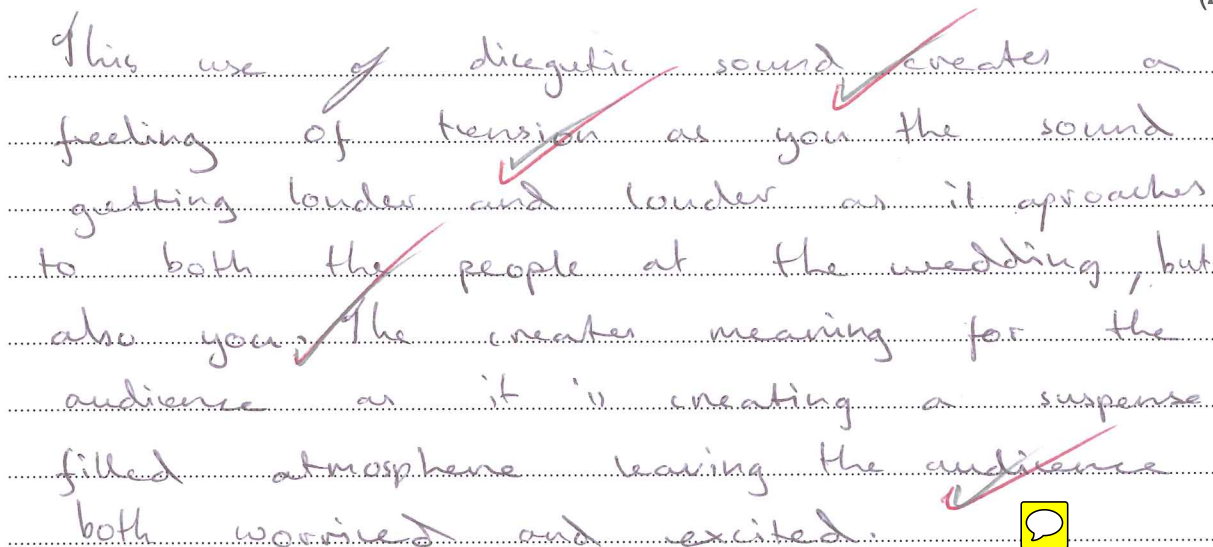 This use of diegutic sound creates a
freeling of tension as you the sound
gutting louder and louder as it aproaches
to both the people at the wedding, but
also you. The creates meaning for the
audience as it is creating a suspense
filled atmosphere leaving the audience
both worried and excited.